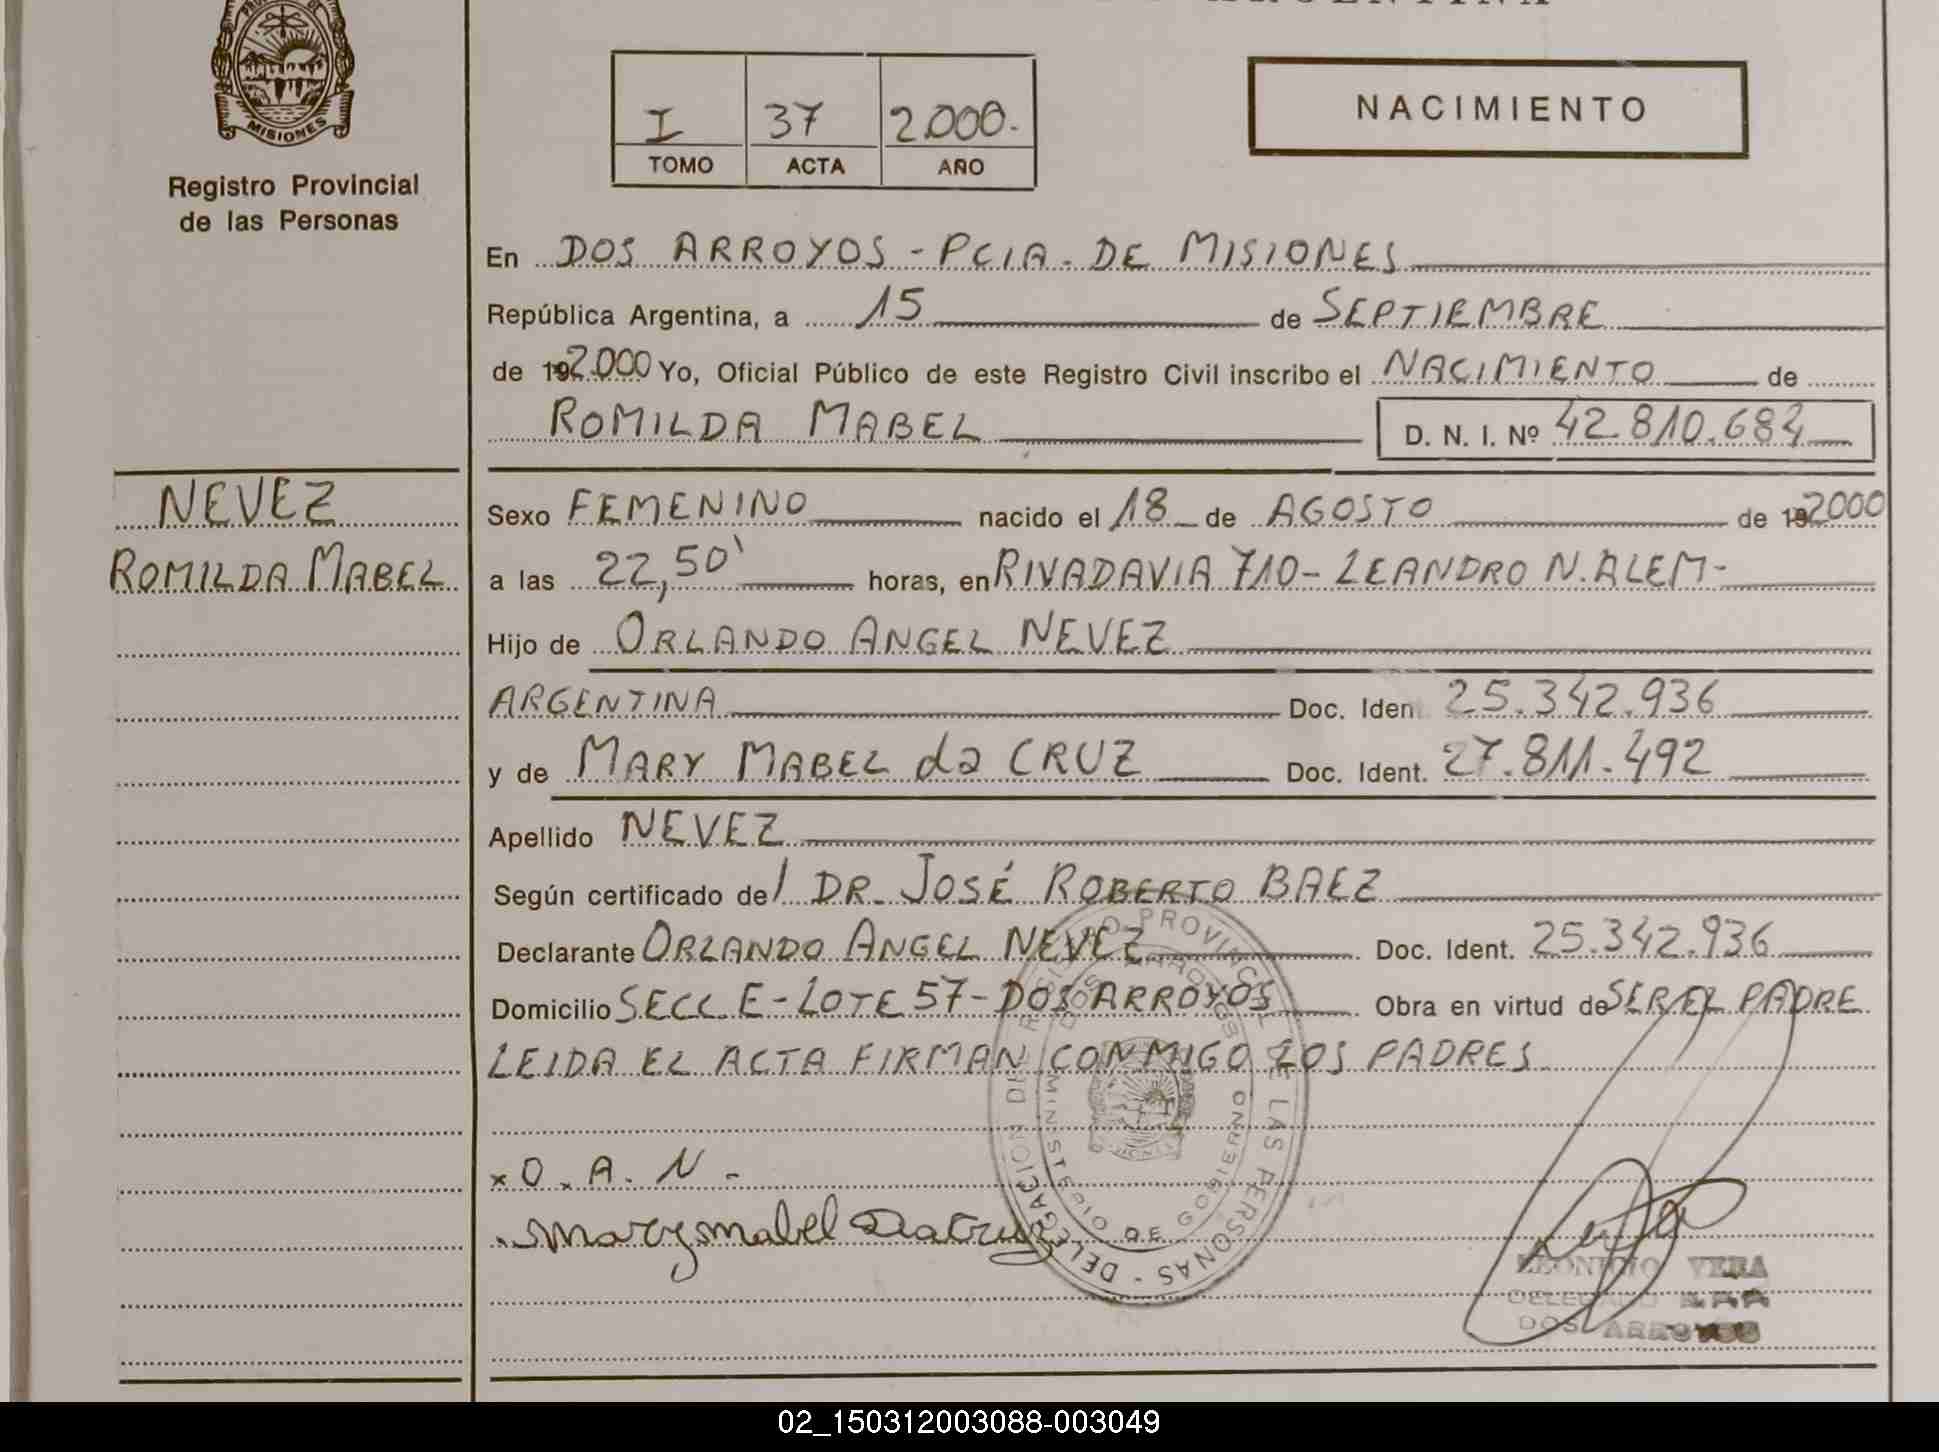 MISIONES
Registro Provincial
de las Personas
I 37 2.000.-
TOMO ACTA AÑO
NACIMIENTO
En DOS ARROYOS - PCIA. DE MISIONES
República Argentina, a 15 de SEPTIEMBRE
de 192.000 Yo, Oficial Público de este Registro Civil inscribo el NACIMIENTO de
ROMILDA MABEL D. N. I. Nº 42.810.684
NEVEZ
ROMILDA MABEL
Sexo FEMENINO nacido el 18 de AGOSTO de 192000
a las 22,50' horas, en RIVADAVIA 710 - LEANDRO N. ALEM-
Hijo de ORLANDO ANGEL NEVEZ
ARGENTINA Doc. Iden 25.342.936
y de MARY MABEL da CRUZ Doc. Ident. 27.811.492
Apellido NEVEZ
Según certificado de/ DR. JOSÉ ROBERTO BAEZ
Declarante ORLANDO ANGEL NEVEZ Doc. Ident. 25.342.936
Domicilio SECC E - LOTE 57 - DOS ARROYOS Obra en virtud de SER EL PADRE
LEIDA EL ACTA FIRMAN CONMIGO LOS PADRES
x O. A. N. -
Mary mabel Da Cruz
REGISTRO PROVINCIAL DE LAS PERSONAS - DELEGACION
DOS ARROYOS
MINISTERIO DE GOBIERNO
VERA
DELEGADO
DOS ARROYOS
02_150312003088-003049